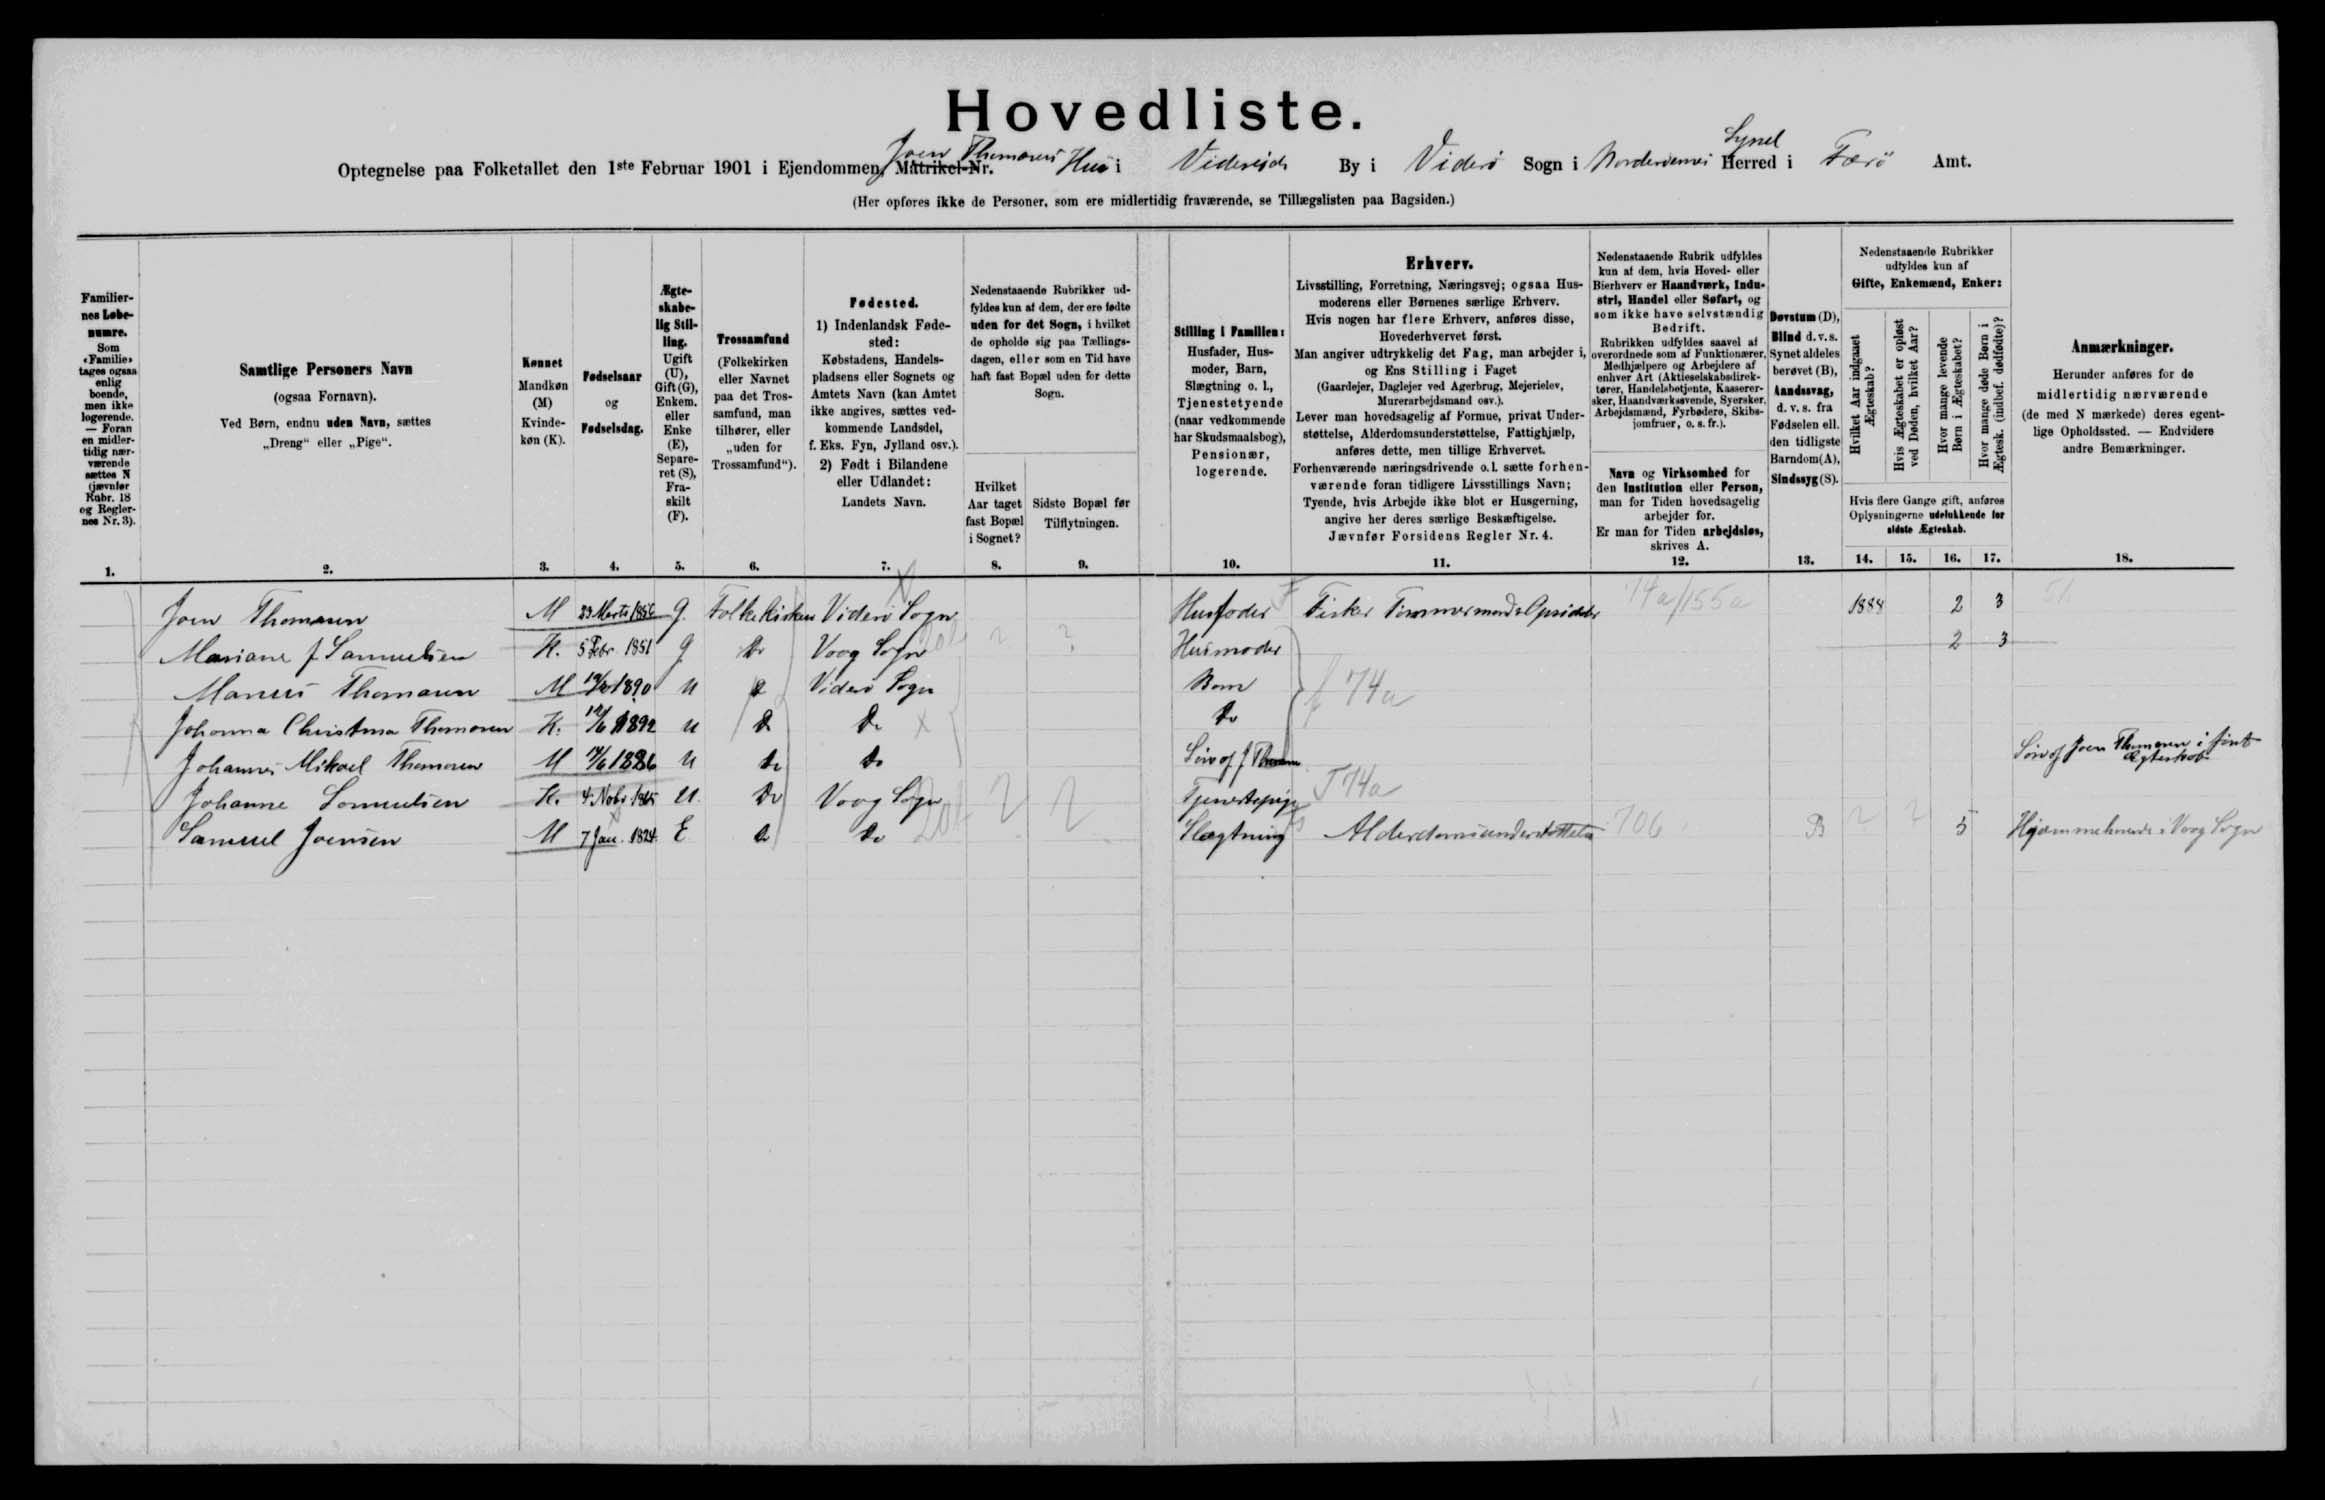 Hovedliste.
Optegnelse paa Folketallet den 1ste Februar 1901 i Ejendommen, Matrikel-Nr. Joen Thomasens Hus i Viderejde By i Viderö Sogn i Norderøernes Herred Syssel i Færö Amt.
(Her opføres ikke de Personer, som ere midlertidig fraværende, se Tillægslisten paa Bagsiden.)
Familiernes Løbenumre.
Som «Familie» tages ogsaa enlig boende, men ikke logerende. — Foran en midlertidig nærværende sættes N (jævnfør Rubr. 18 og Reglernes Nr. 3).
1.
Samtlige Personers Navn
(ogsaa Fornavn).
Ved Børn, endnu uden Navn, sættes
„Dreng“ eller „Pige“.
2.
Kønnet
Mandkøn
(M)
Kvindekøn (K).
3.
Fødselsaar
og
Fødselsdag.
4.
Ægteskabelig Stilling.
Ugift (U), Gift (G), Enkem. eller Enke (E), Separeret (S), Fraskilt (F).
5.
Trossamfund
(Folkekirken eller Navnet paa det Trossamfund, man tilhører, eller „uden for Trossamfund“).
6.
Fødested.
1) Indenlandsk Fødested:
Købstadens, Handelspladsens eller Sognets og Amtets Navn (kan Amtet ikke angives, sættes vedkommende Landsdel, f. Eks. Fyn, Jylland osv.).
2) Født i Bilandene eller Udlandet:
Landets Navn.
7.
Nedenstaaende Rubrikker udfyldes kun af dem, der ere fødte uden for det Sogn, i hvilket de opholde sig paa Tællingsdagen, eller som en Tid have haft fast Bopæl uden for dette Sogn.
Hvilket Aar taget fast Bopæl i Sognet?
8.
Sidste Bopæl før Tilflytningen.
9.
Stilling i Familien:
Husfader, Husmoder, Barn, Slægtning o. l., Tjenestetyende (naar vedkommende har Skudsmaalsbog), Pensionær, logerende.
10.
Erhverv.
Livsstilling, Forretning, Næringsvej; ogsaa Husmoderens eller Børnenes særlige Erhverv.
Hvis nogen har flere Erhverv, anføres disse, Hovederhvervet først.
Man angiver udtrykkelig det Fag, man arbejder i, og Ens Stilling i Faget
(Gaardejer, Daglejer ved Agerbrug, Mejerielev, Murerarbejdsmand osv.).
Lever man hovedsagelig af Formue, privat Understøttelse, Alderdomsunderstøttelse, Fattighjælp, anføres dette, men tillige Erhvervet.
Forhenværende næringsdrivende o. l. sætte forhenværende foran tidligere Livsstillings Navn;
Tyende, hvis Arbejde ikke blot er Husgerning, angive her deres særlige Beskæftigelse.
Jævnfør Forsidens Regler Nr. 4.
11.
Nedenstaaende Rubrik udfyldes kun af dem, hvis Hoved- eller Bierhverv er Haandværk, Industri, Handel eller Søfart, og som ikke have selvstændig Bedrift.
Rubrikken udfyldes saavel af overordnede som af Funktionærer, Medhjælpere og Arbejdere af enhver Art (Aktieselskabsdirektører, Handelsbetjente, Kasserersker, Haandværkssvende, Syersker, Arbejdsmænd, Fyrbødere, Skibsjomfruer, o. s. fr.).
Navn og Virksomhed for den Institution eller Person, man for Tiden hovedsagelig arbejder for.
Er man for Tiden arbejdsløs, skrives A.
12.
Døvstum (D), Blind d. v. s. Synet aldeles berøvet (B), Aandssvag, d. v. s. fra Fødselen ell. den tidligste Barndom (A), Sindssyg (S).
13.
Nedenstaaende Rubrikker udfyldes kun af
Gifte, Enkemænd, Enker:
Hvilket Aar indgaaet Ægteskab?
Hvis Ægteskabet er opløst ved Døden, hvilket Aar?
Hvor mange levende Børn i Ægteskabet?
Hvor mange døde Børn i Ægtesk. (indbef. dødfødte)?
Hvis flere Gange gift, anføres Oplysningerne udelukkende for sidste Ægteskab.
14. 15. 16. 17.
Anmærkninger.
Herunder anføres for de midlertidig nærværende (de med N mærkede) deres egentlige Opholdssted. — Endvidere andre Bemærkninger.
18.
Joen Thomasen M 23 Marts 1856 G Folkekirken Viderö Sogn Husfader F Fisker Tømmermand Opsidder 74a/155a 1888 2 3 51
Mariane J Samuelsen K. 5 Febr. 1851 G Do Vaag Sogn 2 ? Husmoder 2 3
Marius Thomasen M 1890 U Do Viderö Sogn Barn f 74a
Johanna Christina Thomasen K. 1892 U Do Do Do
Johannes Mikael Thomasen M 1886 U Do Do Søn af J Thomasen Søn af Joen Thomasen i först Ægteskab
Johanne Samuelsen K. 4 Nobr. U. Do Vaag Sogn ? ? Tjenestepige T 74a
Samuel Joensen M 7 Jan. 1824 E Do Do Slægtning Alderdomsunderstøttelse 706 B ? ? 5 Hjemmehørende i Vaag Sogn